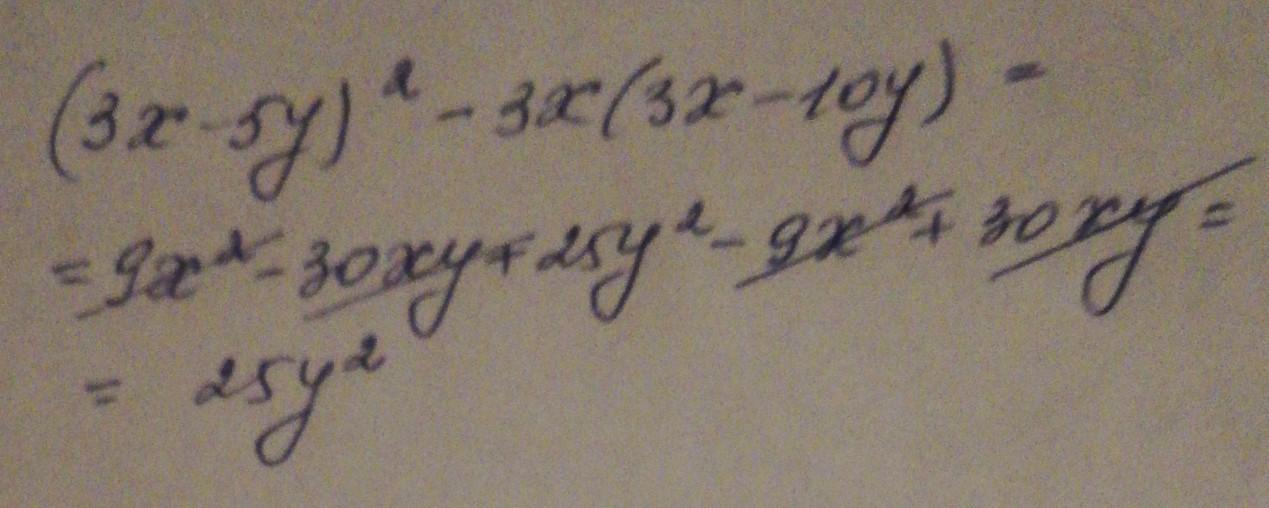 (3x-5y)² - 3x(3x-10y) =
= 9x² - 30xy + 25y² - 9x² + 30xy =
= 25y²